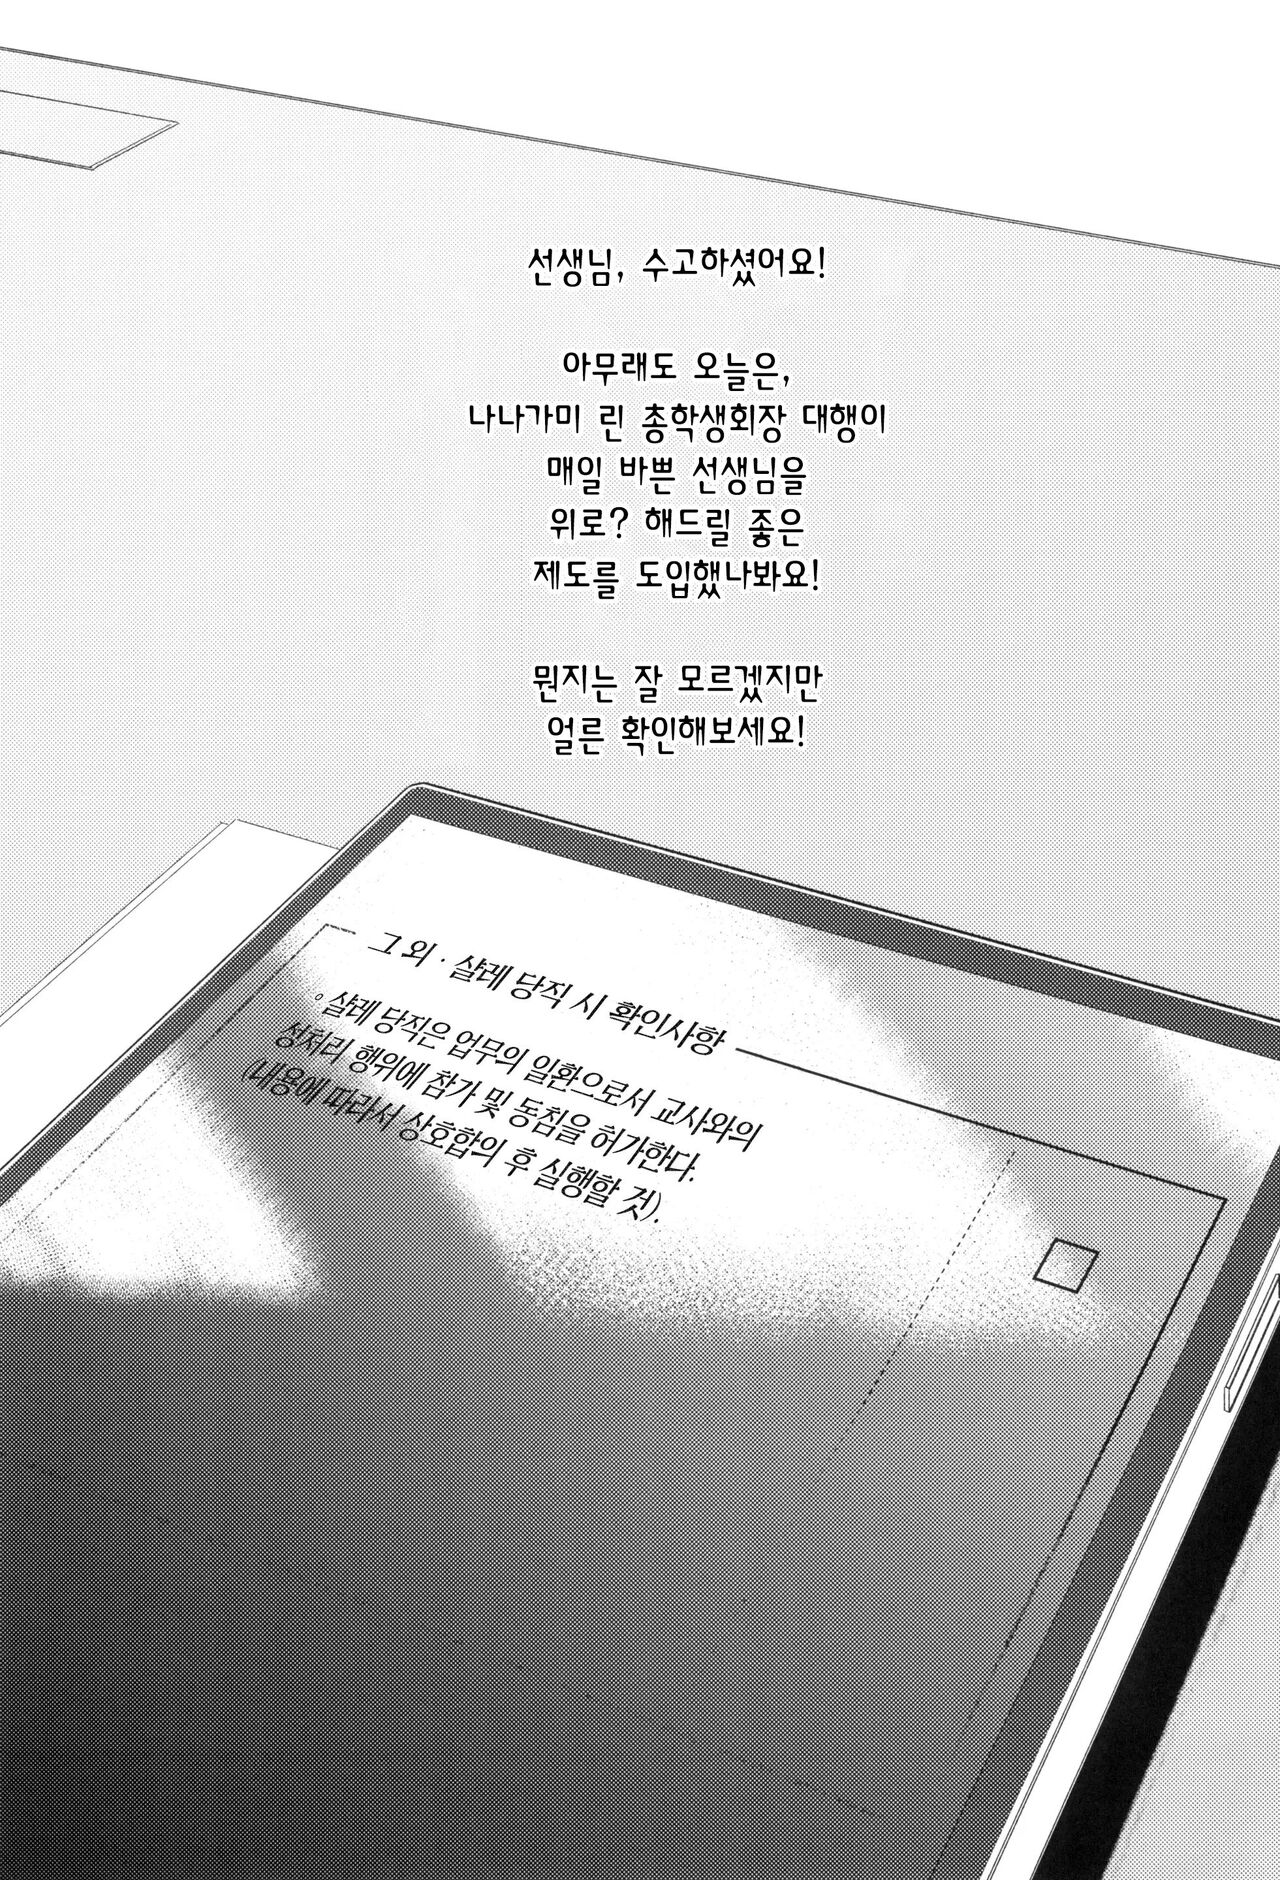 선생님, 수고하셨어요!
아무래도 오늘은,
나나가미 린 총학생회장 대행이
매일 바쁜 선생님을
위로? 해드릴 좋은
제도를 도입했나봐요!
뭔지는 잘 모르겠지만
얼른 확인해보세요!
그 외 · 샬레 당직 시 확인사항
◦ 샬레 당직은 업무의 일환으로서 교사와의
성처리 행위에 참가 및 동침을 허가한다.
(내용에 따라서 상호합의 후 실행할 것).